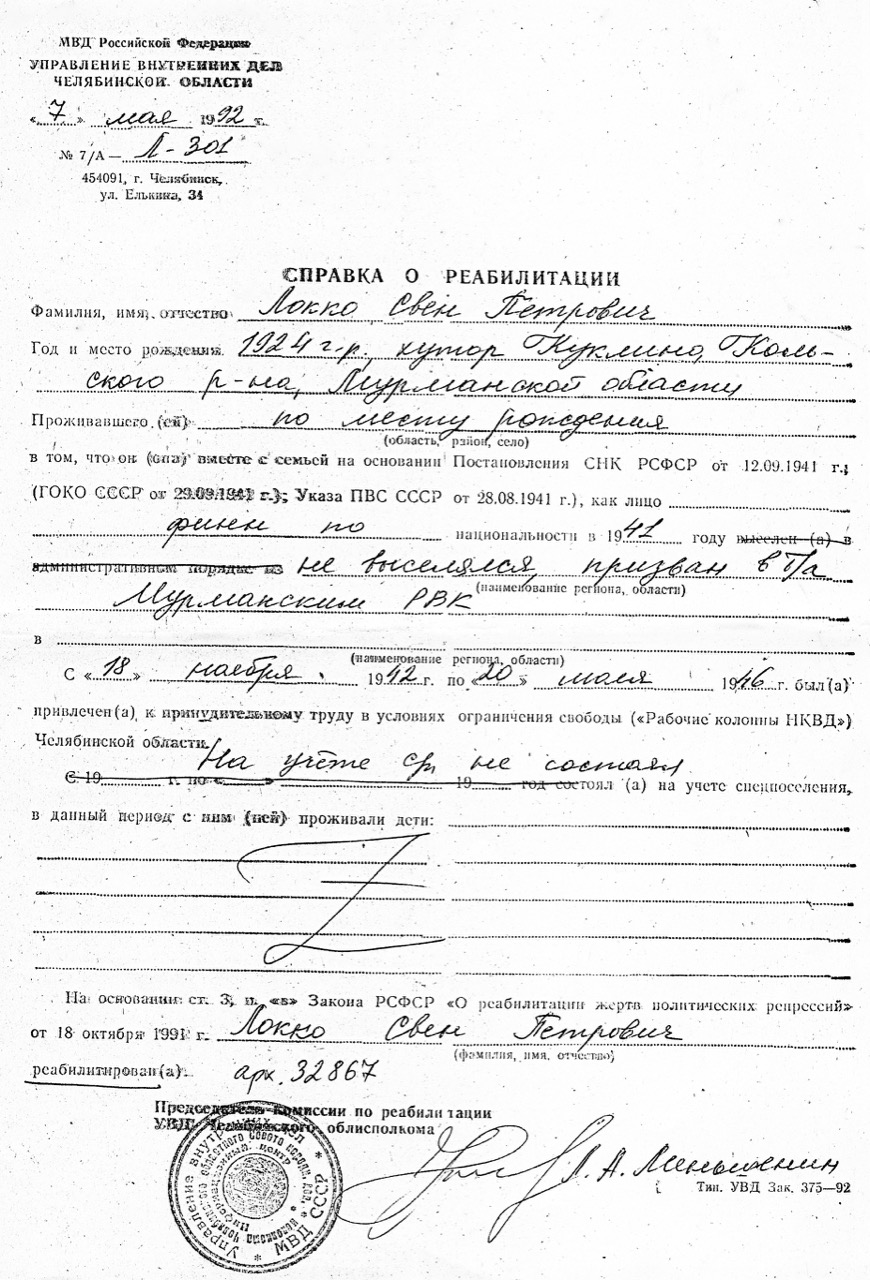 МВД Российской Федерации
УПРАВЛЕНИЕ ВНУТРЕННИХ ДЕЛ
ЧЕЛЯБИНСКОЙ ОБЛАСТИ
«7» мая 1992 г.
№ 7/А — Л-301
454091, г. Челябинск,
ул. Елькина, 34
СПРАВКА О РЕАБИЛИТАЦИИ
Фамилия, имя, отчество Локко Свен Петрович
Год и место рождения 1924 г.р., хутор Куклино, Коль-
ского р-на, Мурманской области
Проживавшего (ей) по месту рождения
(область, район, село)
в том, что он (она) вместе с семьей на основании Постановления СНК РСФСР от 12.09.1941 г.;
(ГОКО СССР от 29.09.1941 г.); Указа ПВС СССР от 28.08.1941 г.), как лицо
финн по национальности в 1941 году выселен (а) в
административном порядке из не выселялся, призван в Т/а
(наименование региона, области)
Мурманским РВК
в
(наименование региона, области)
С «18» ноября 1942 г. по «20» июля 1946 г. был(а)
привлечен(а) к принудительному труду в условиях ограничения свободы («Рабочие колонны НКВД»)
Челябинской области.
На учёте с/п не состоял
С 19 г. по « » 19 год состоял (а) на учете спецпоселения,
в данный период с ним (ней) проживали дети:
На основании ст. 3, п. «в» Закона РСФСР «О реабилитации жертв политических репрессий»
от 18 октября 1991 г. Локко Свен Петрович
(фамилия, имя, отчество)
реабилитирован(а). арх. 32867
Председатель комиссии по реабилитации
УВД Челябинского облисполкома
Л. А. Меньшенин
Тип. УВД Зак. 375—92
Управление внутренних дел
МВД СССР
Информационный центр